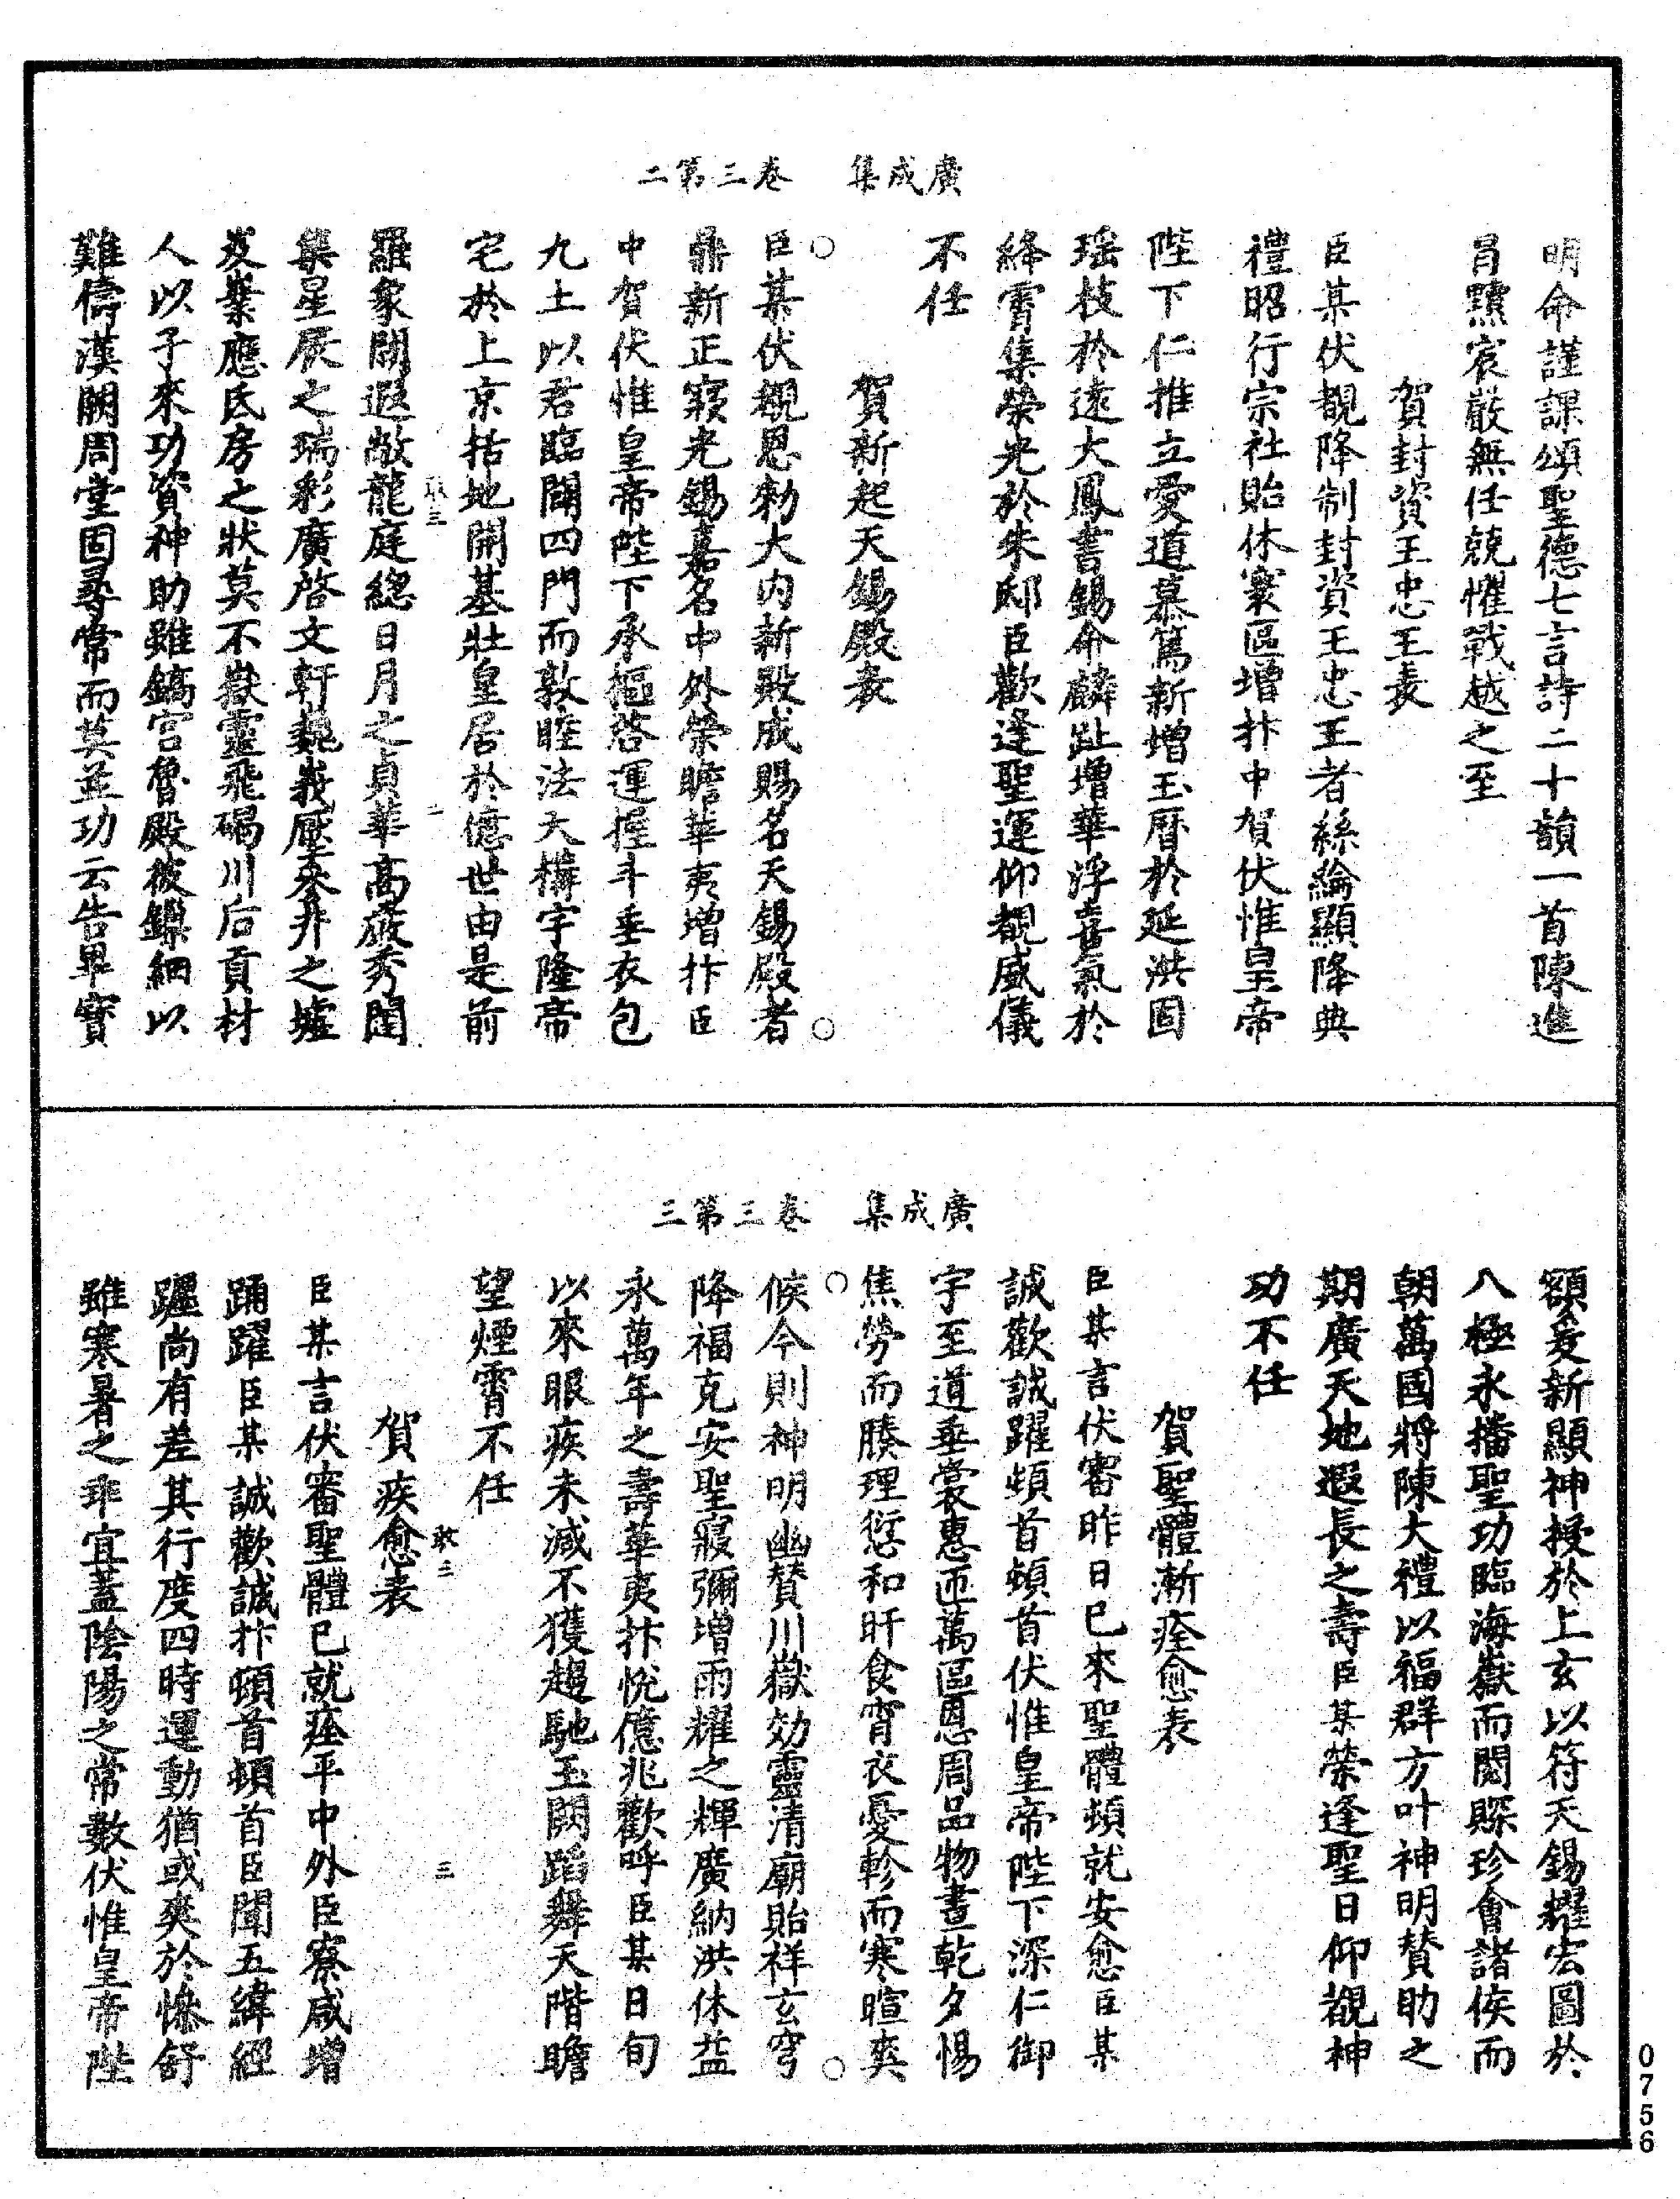 廣成集　卷三第二
明命謹課頌聖德七言詩二十韻一首陳進
冒黷宸嚴無任兢懼戰越之至
賀封資王忠王表
臣某伏覩降制封資王忠王者絲綸顯降典
禮昭行宗社貽休寰區增抃中賀伏惟皇帝
陛下仁推立愛道慕篤新增玉曆於延洪固
瑶枝於遠大鳳書錫命麟趾增華浮喜氣於
絳霄集榮光於朱邸臣歡逢聖運仰覩威儀
不任
賀新起天錫殿表
臣某伏覩恩勑大内新殿成賜名天錫殿者
鼎新正寢光錫嘉名中外榮瞻華夷增抃臣
中賀伏惟皇帝陛下承樞啓運握斗垂衣包
九土以君臨闢四門而敦睦法大構宇隆帝
宅於上京括地開基壯皇居於億世由是前
羅象闕遐敞龍庭總日月之貞華高嚴秀闥
集星辰之瑞彩廣啓文軒巍峩壓參井之墟
岌嶪應氐房之狀莫不嶽靈飛碣川后貢材
人以子來功資神助雖鎬宫魯殿彼鏤細以
難儔漢闕周堂固尋常而莫並功云告畢寳
二
廣成集　卷三第三
額爰新顯神授於上玄以符天錫耀宏圖於
八極永播聖功臨海嶽而閱賝珍會諸侯而
朝萬國將陳大禮以福群方叶神明賛助之
期廣天地遐長之壽臣某榮逢聖日仰覩神
功不任
賀聖體漸痊愈表
臣某言伏審昨日已來聖體頓就安愈臣某
誠歡誠躍頓首頓首伏惟皇帝陛下深仁御
宇至道垂裳惠匝萬區恩周品物晝乾夕惕
焦勞而腠理愆和旰食宵衣憂軫而寒暄爽
候今則神明幽賛川嶽効靈清廟貽祥玄穹
降福克安聖寢彌增兩耀之輝廣納洪休益
永萬年之壽華夷抃悅億兆歡呼臣某日旬
以來眼疾未減不獲趨馳玉闕蹈舞天階瞻
望煙霄不任
賀疾愈表
臣某言伏審聖體已就痊平中外臣寮咸增
踊躍臣某誠歡誠抃頓首頓首臣聞五緯經
躔尚有差其行度四時運動猶或爽於慘舒
雖寒暑之乖宜蓋陰陽之常數伏惟皇帝陛
三
0756